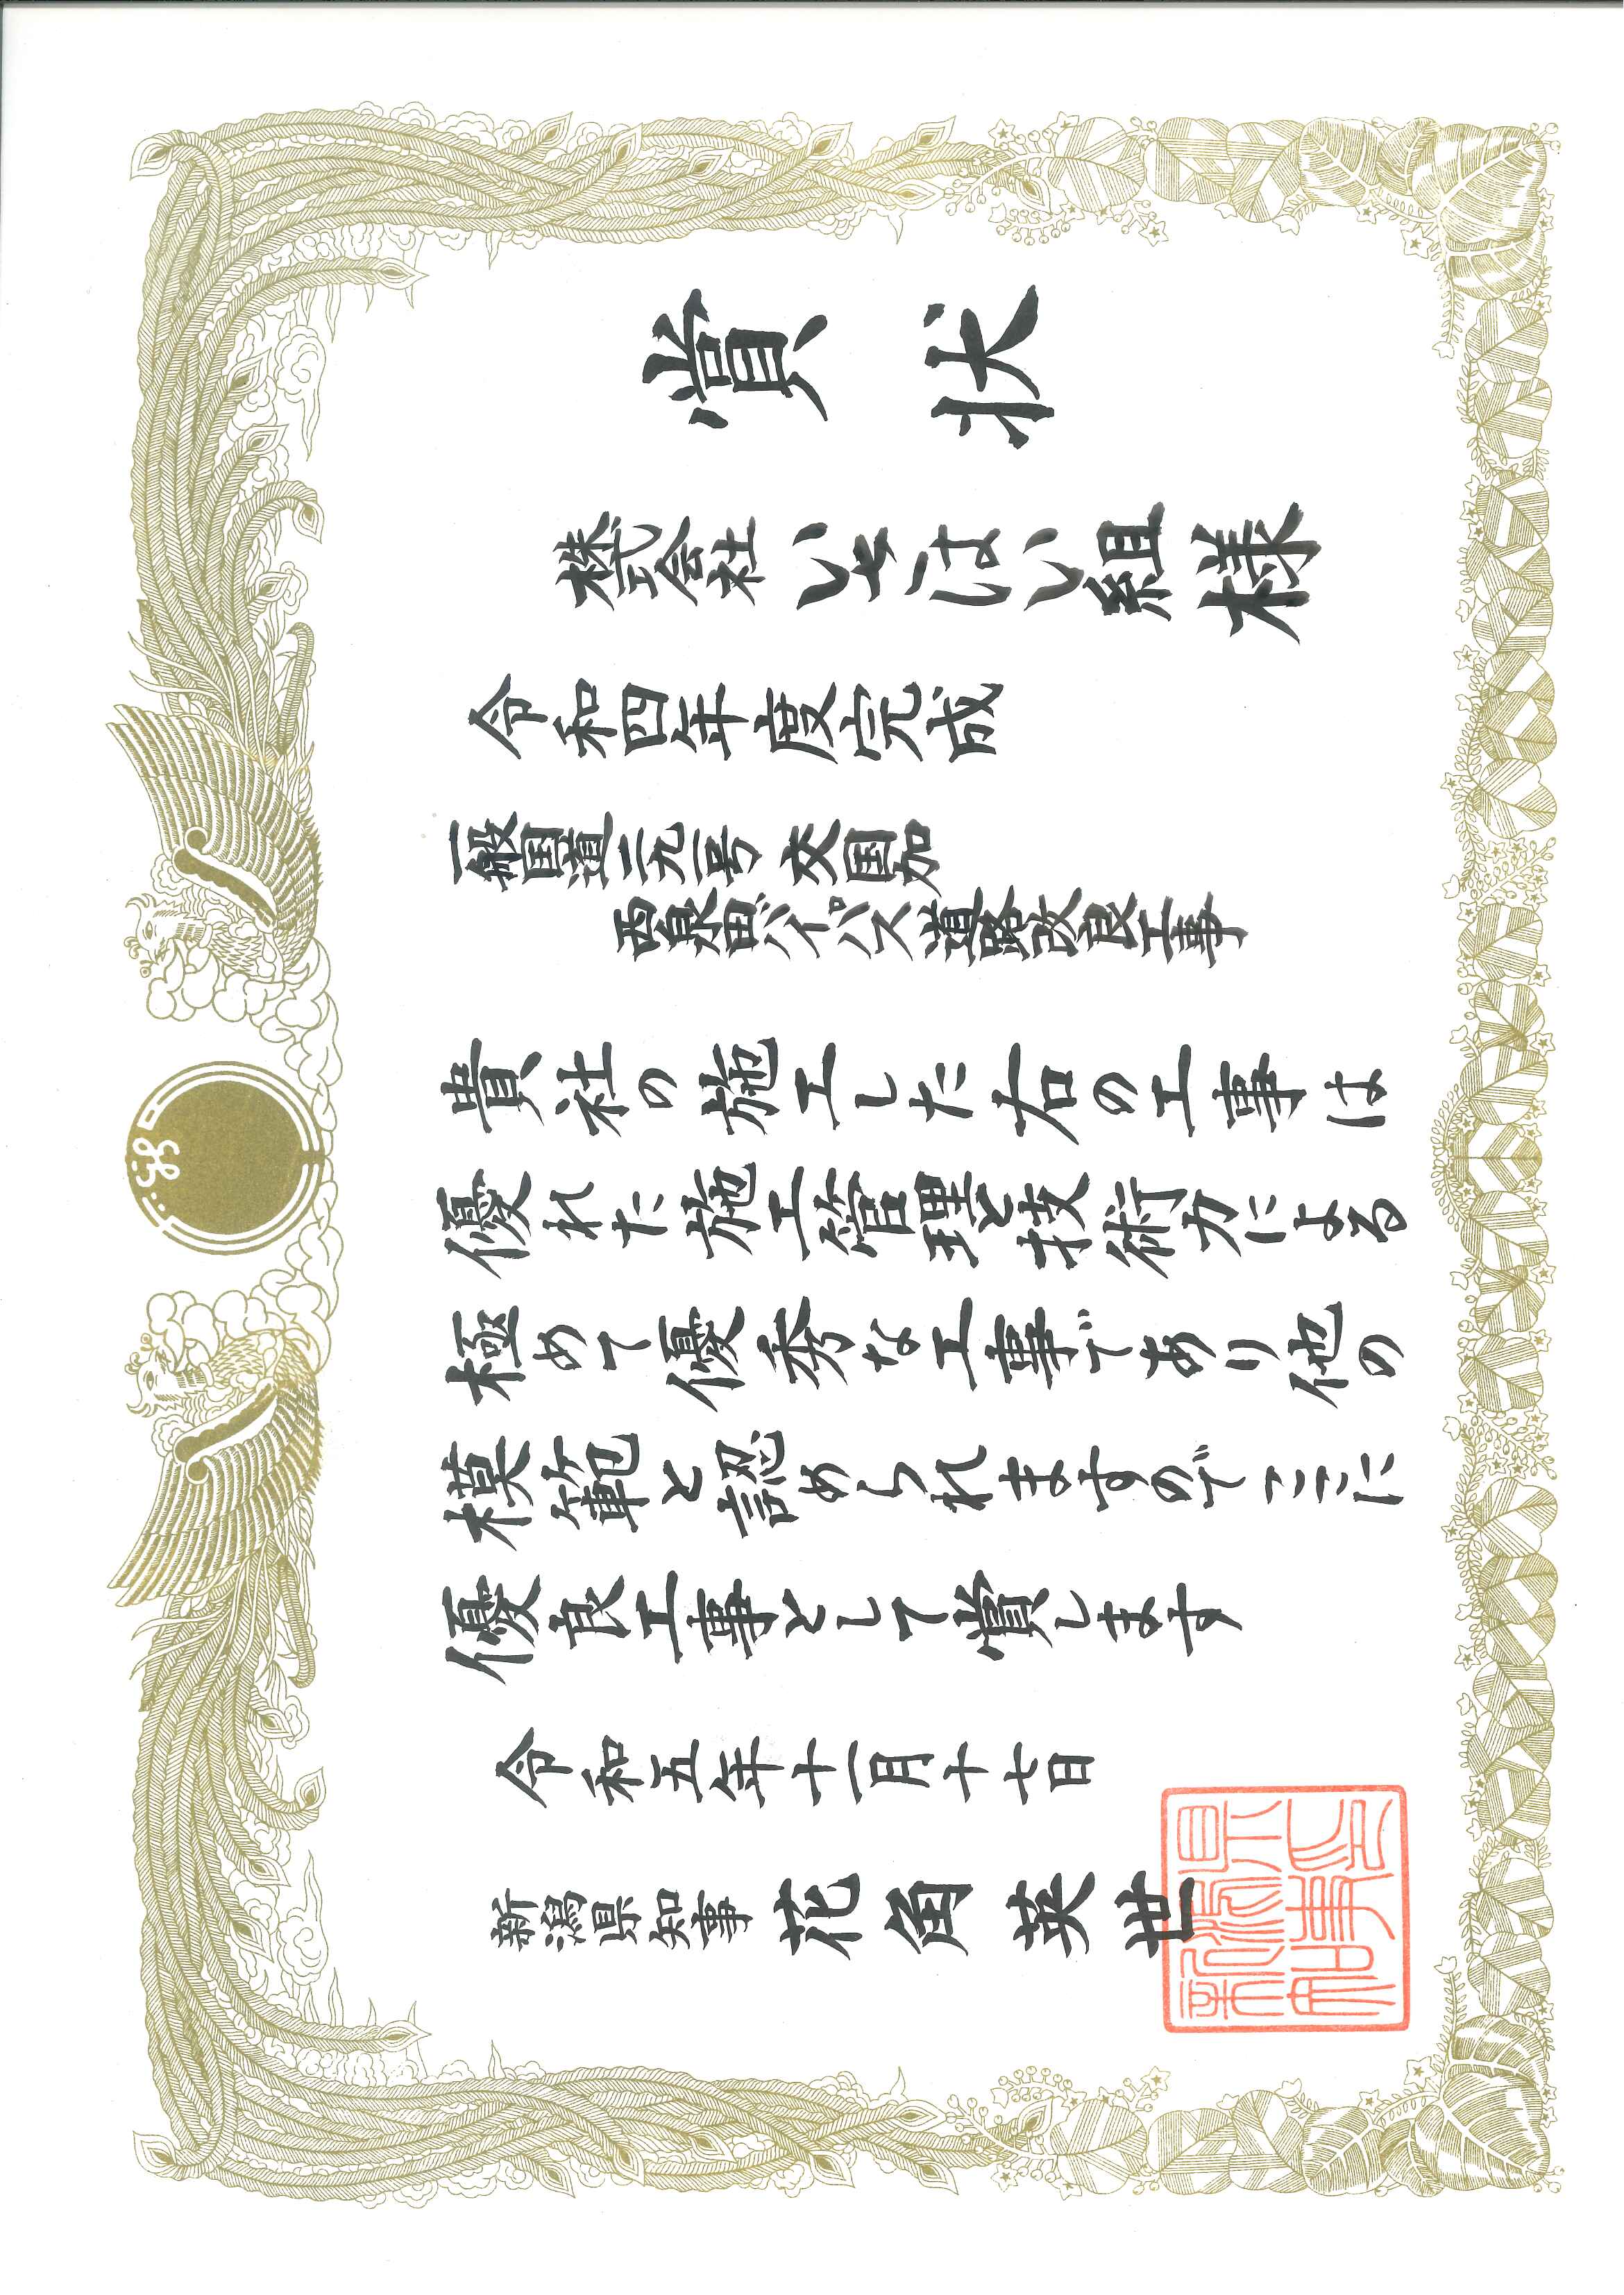 賞状
株式会社 組 様
令和四年度完成
一般国道二九一号 交国加
西泉田バイパス道路改良工事
貴社の施工した右の工事は
優れた施工管理と技術力による
極めて優秀な工事であり他の
模範と認められますのでここに
優良工事として賞します
令和五年十一月十七日
新潟県知事 花角英世